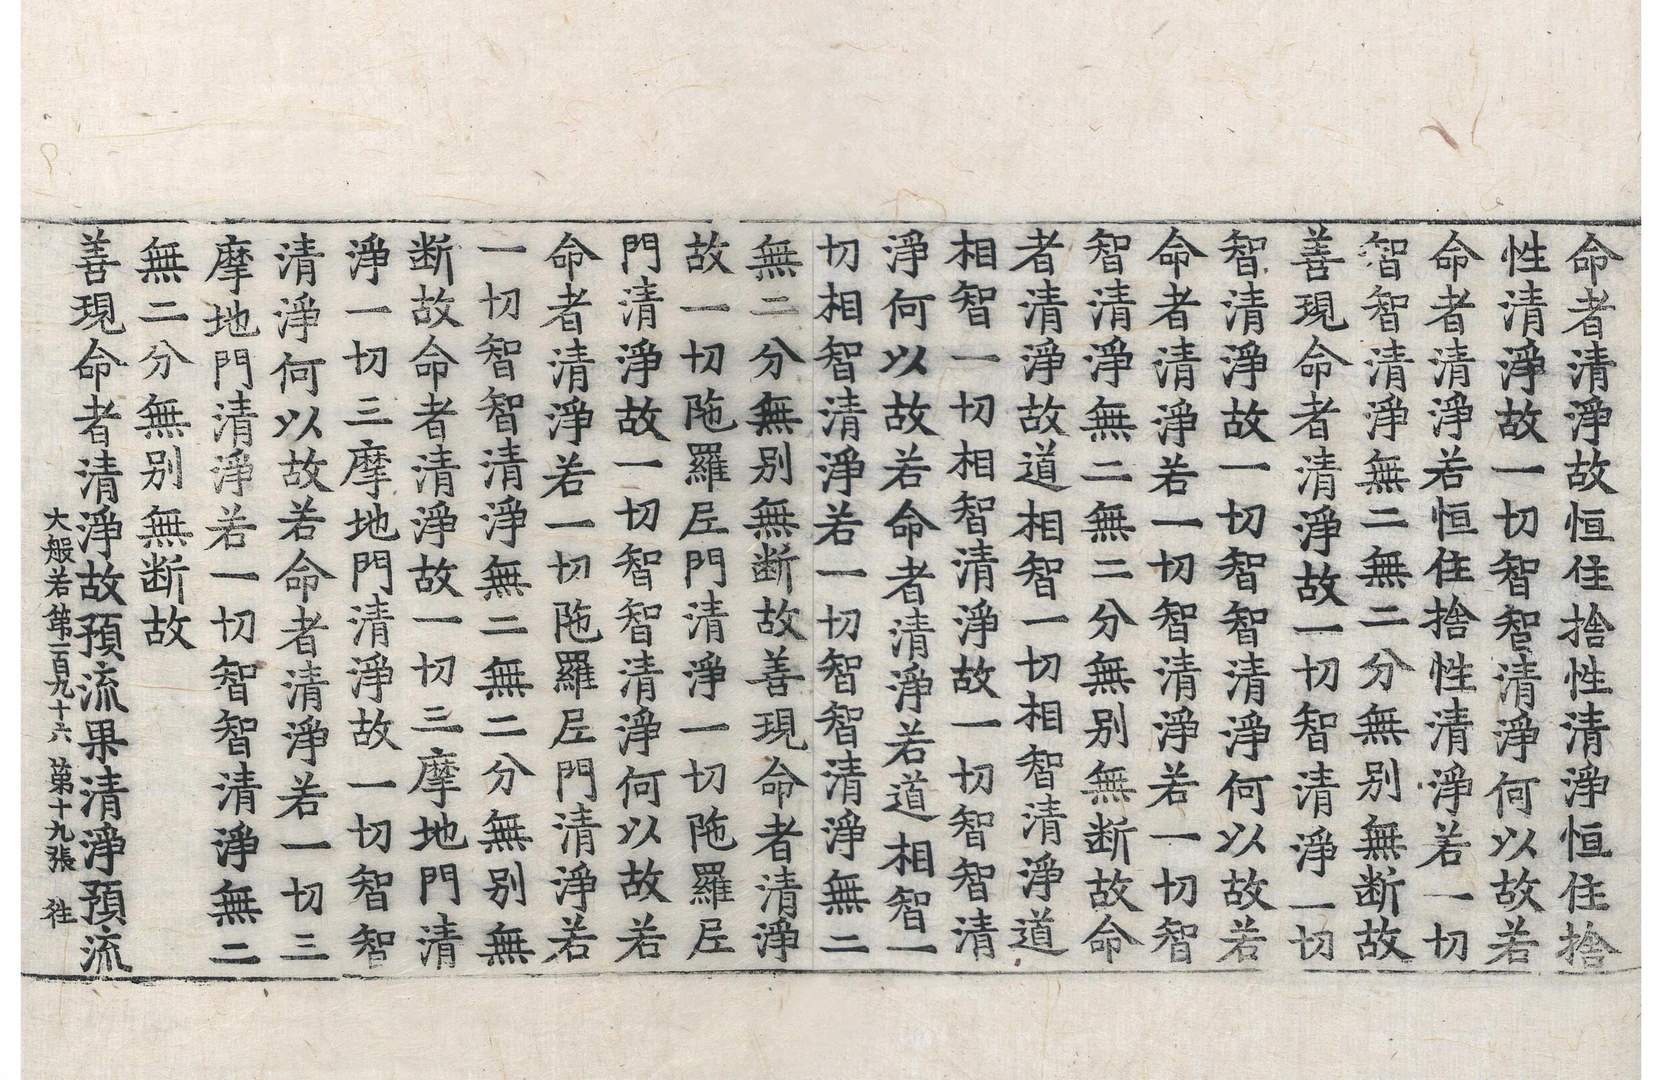 命者清淨故恒住捨性清淨恒住捨
性清淨故一切智智清淨何以故若
命者清淨若恒住捨性清淨若一切
智智清淨無二無二分無别無断故
善現命者清淨故一切智清淨一切
智清淨故一切智智清淨何以故若
命者清淨若一切智清淨若一切智
智清淨無二無二分無别無断故命
者清淨故道相智一切相智清淨道
相智一切相智清淨故一切智智清
淨何以故若命者清淨若道相智一
切相智清淨若一切智智清淨無二
無二分無别無断故善現命者清淨
故一切陁羅尼門清淨一切陁羅尼
門清淨故一切智智清淨何以故若
命者清淨若一切陁羅尼門清淨若
一切智智清淨無二無二分無别無
断故命者清淨故一切三摩地門清
淨一切三摩地門清淨故一切智智
清淨何以故若命者清淨若一切三
摩地門清淨若一切智智清淨無二
無二分無别無断故
善現命者清淨故預流果清淨預流
大般若第一百九十六 第十九張 往